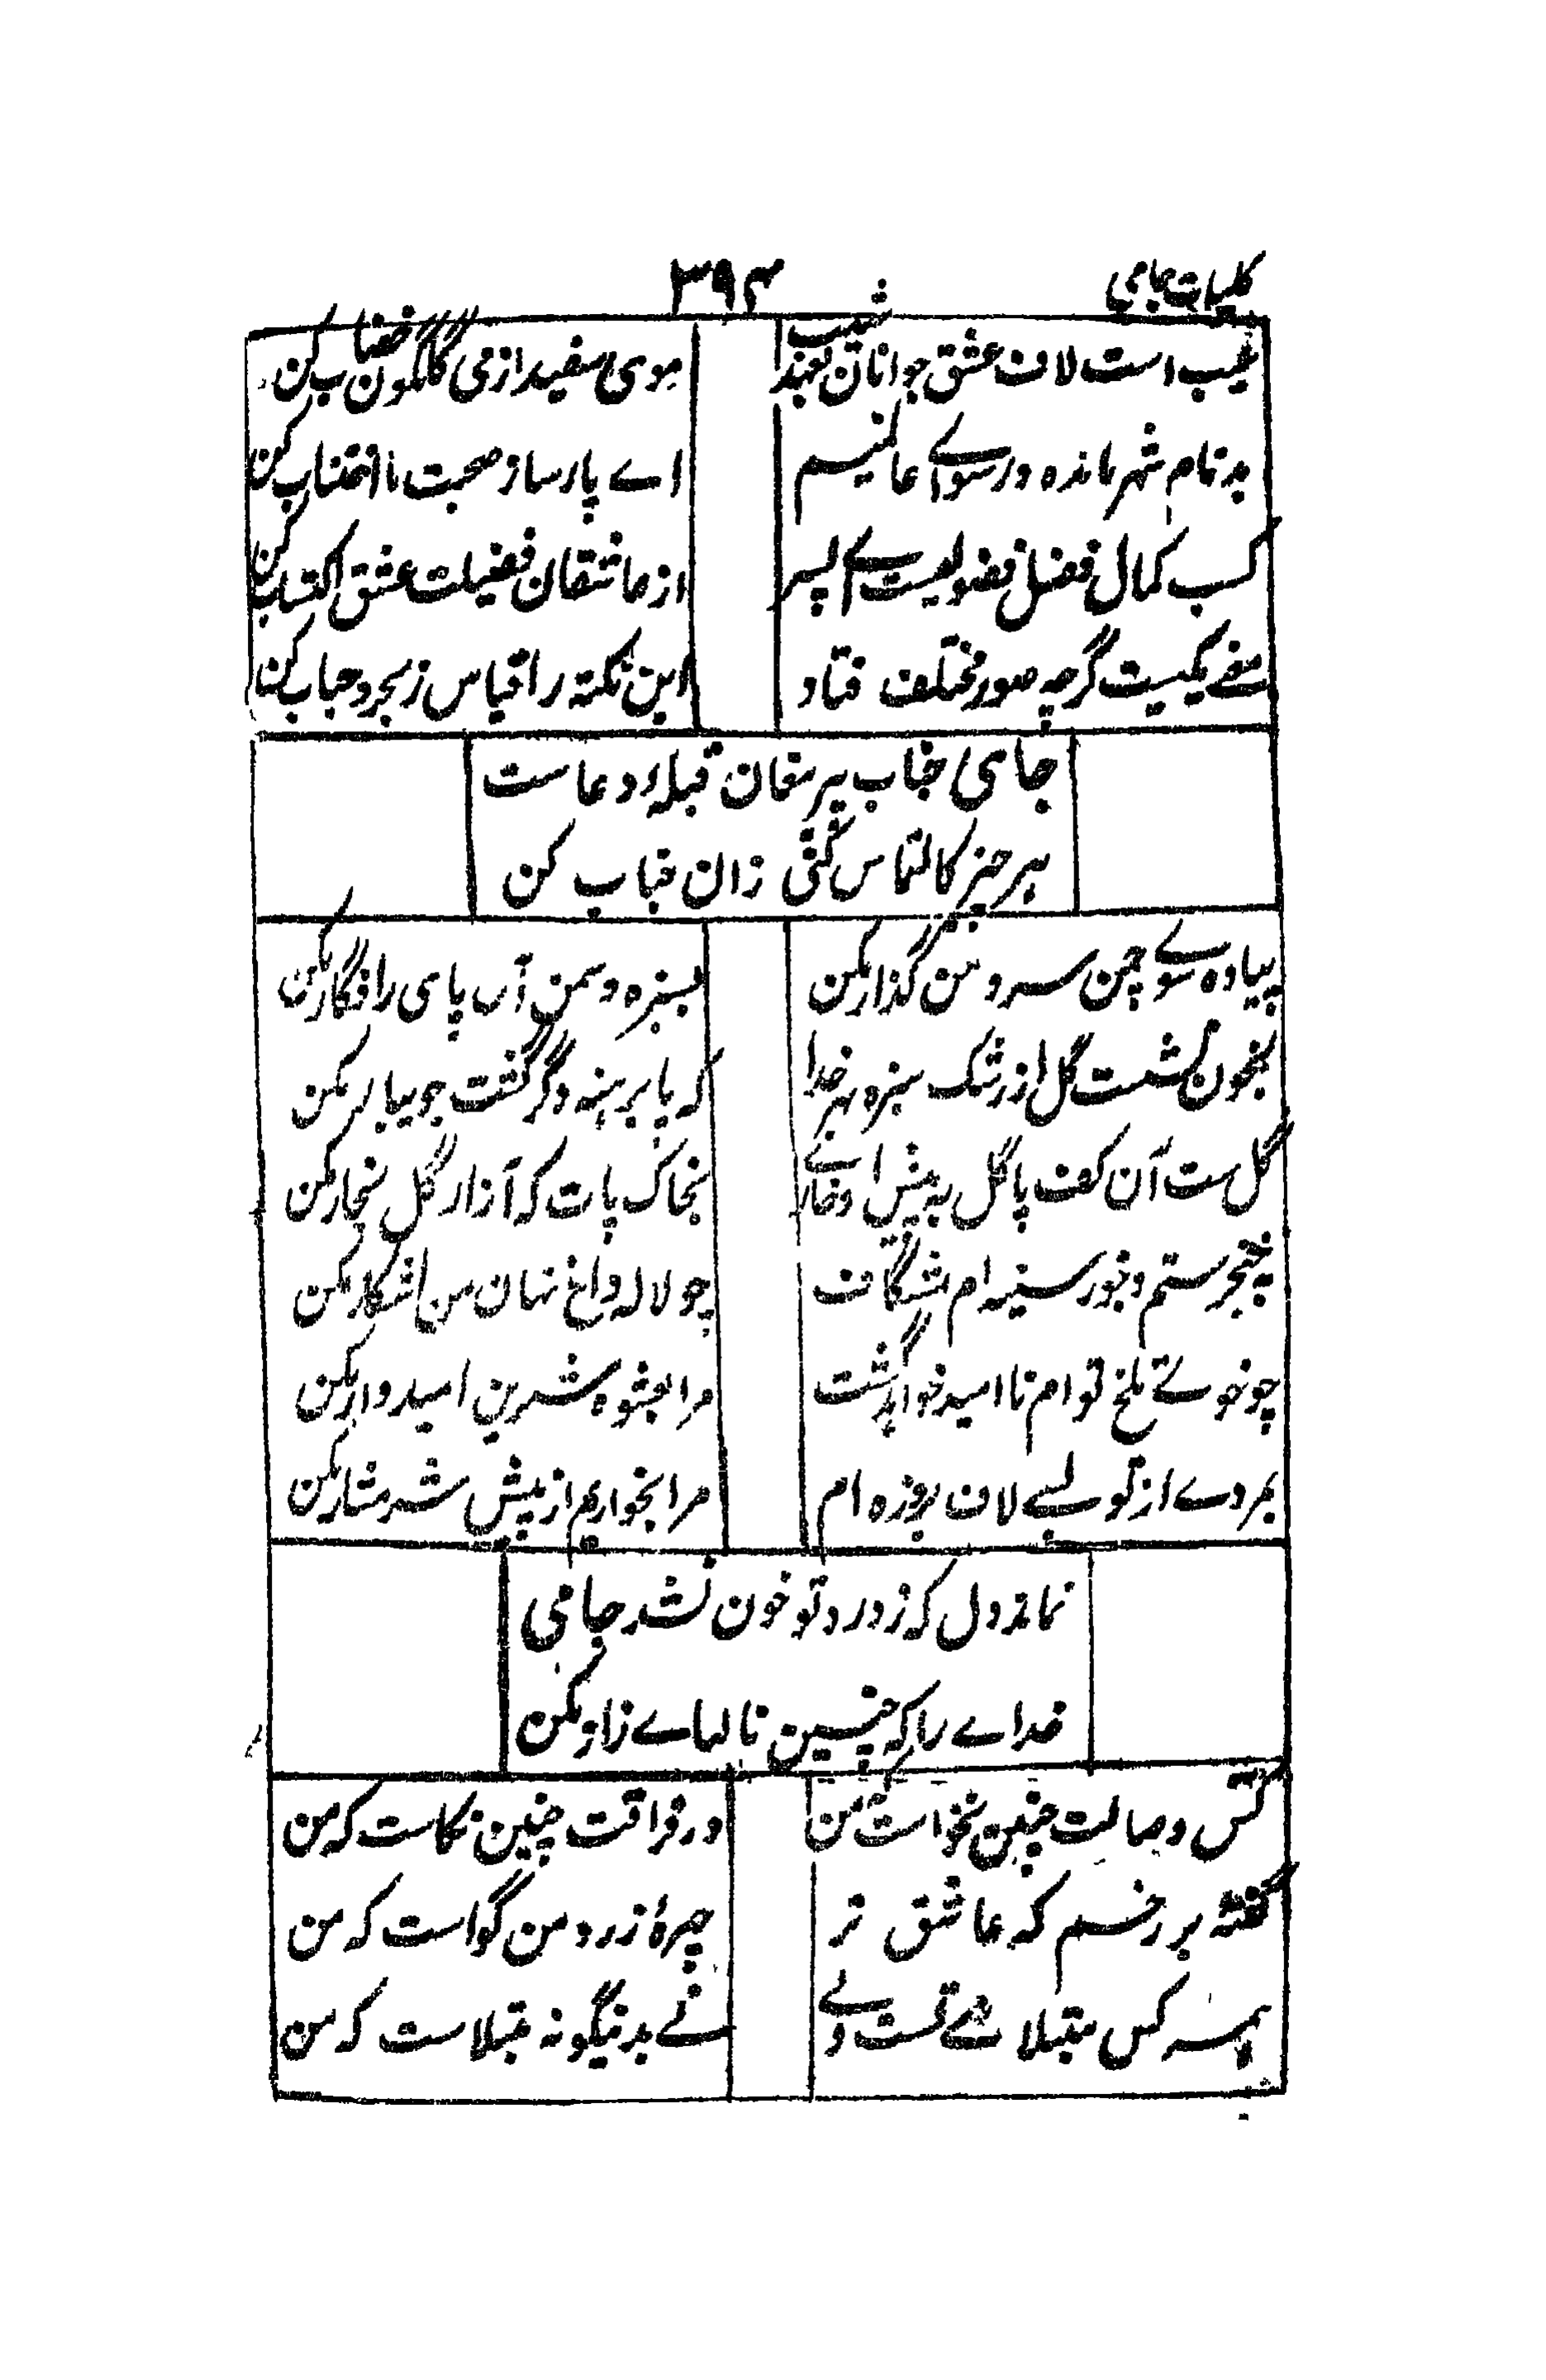 کلیات جامی
۳۹۴
عیب است لاف عشق جوانان بعهد شیب
موی سفید از می گلگون خضاب کن
بدنام شهر مانده و رسوائے عالمیم
اے پارسا ز صحبت ما اجتناب کن
کسب کمال فضل فضولیست اے پسر
از عاشقان فضیلت عشق اکتساب کن
معنے یکیست گرچه صور مختلف فتاد
این نکته را قیاس ز بحر و حباب کن
جامی جناب پیر مغان قبلهٔ دعاست
هر چیز کالتماس کنی زان جناب کن
پیاده سوے چمن سرو من گذار مکن
بسبزه و سمن آن پای را فگار مکن
بخون نشست گل از رشک سبزه بهر خدا
که پا برهنه دگر گشت جویبار مکن
گل ست آن کف پا گل به پیش او خارے
بخاک پات که آزار گل بخار مکن
بخنجر ستم و جور سینه ام مشگاف
چو لاله داغ نهان من آشکار مکن
چو خوے تلخ تو ام ناامید خواهد کشت
مرا بعشوه شیرین امیدوار مکن
بمردے از تو بسے لاف بر زده ام
مرا بخواریم از پیش شرمسار مکن
نماند دل که ز درد تو خون نشد جامی
خداے را که چنین نالهاے زار مکن
کس وصالت چنین نخواست که من
در فراقت چنین نکاست که من
گفتهٔ بر رخم که عاشق تر
چهرهٔ زرد من گواست که من
همه کس مبتلاے تست ولے
نے بدینگونه مبتلاست که من